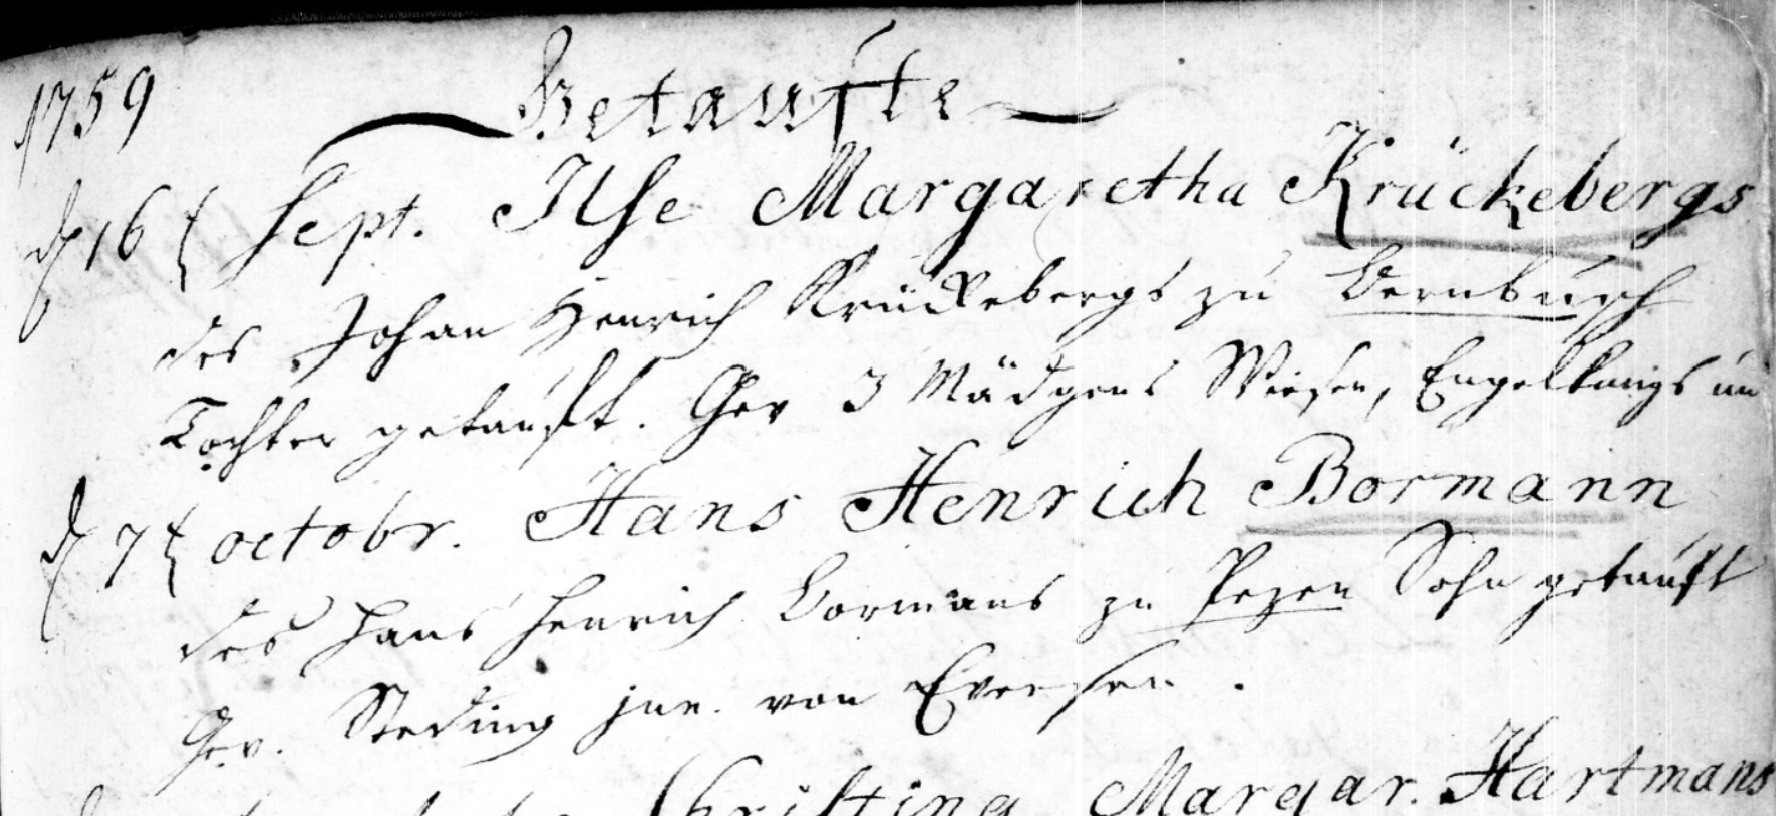 1759
Getaufte
d 16 t Sept. Ilse Margaretha Krückebergs
des Johan Henrich Krückebergs zu Bernbusch
Tochter getauft. Gev 3 Mädgens Wiesen, Engelkings un
d 7 t octobr. Hans Henrich Bormann
des Hans Henrich Bormans zu Pezen Sohn getauft
Gev. Steding jun. von Evesen.
Christina Margar. Hartmans